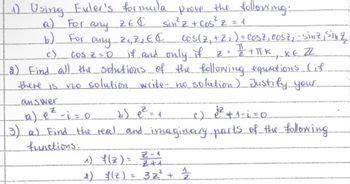 1) Using Euler's formula prove the following.
a) For any z ∈ ℂ sin²z + cos²z = 1
b) For any z₁, z₂ ∈ ℂ cos(z₁+z₂) = cos z₁ cos z₂ - sin z₁ sin z₂
c) cos z = 0 if and only if z = π/2 + πk, k ∈ ℤ
2) Find all the solutions of the following equations (if
there is no solution write - no solution) Justify your
answer
a) e^z - i = 0 b) e^z = 1 c) e^{iz} + 1 - i = 0
3) a) Find the real and imaginary parts of the following
functions:
1) f(z) = (z-1)/(z+1)
2) f(z) = 3z² + 1/z